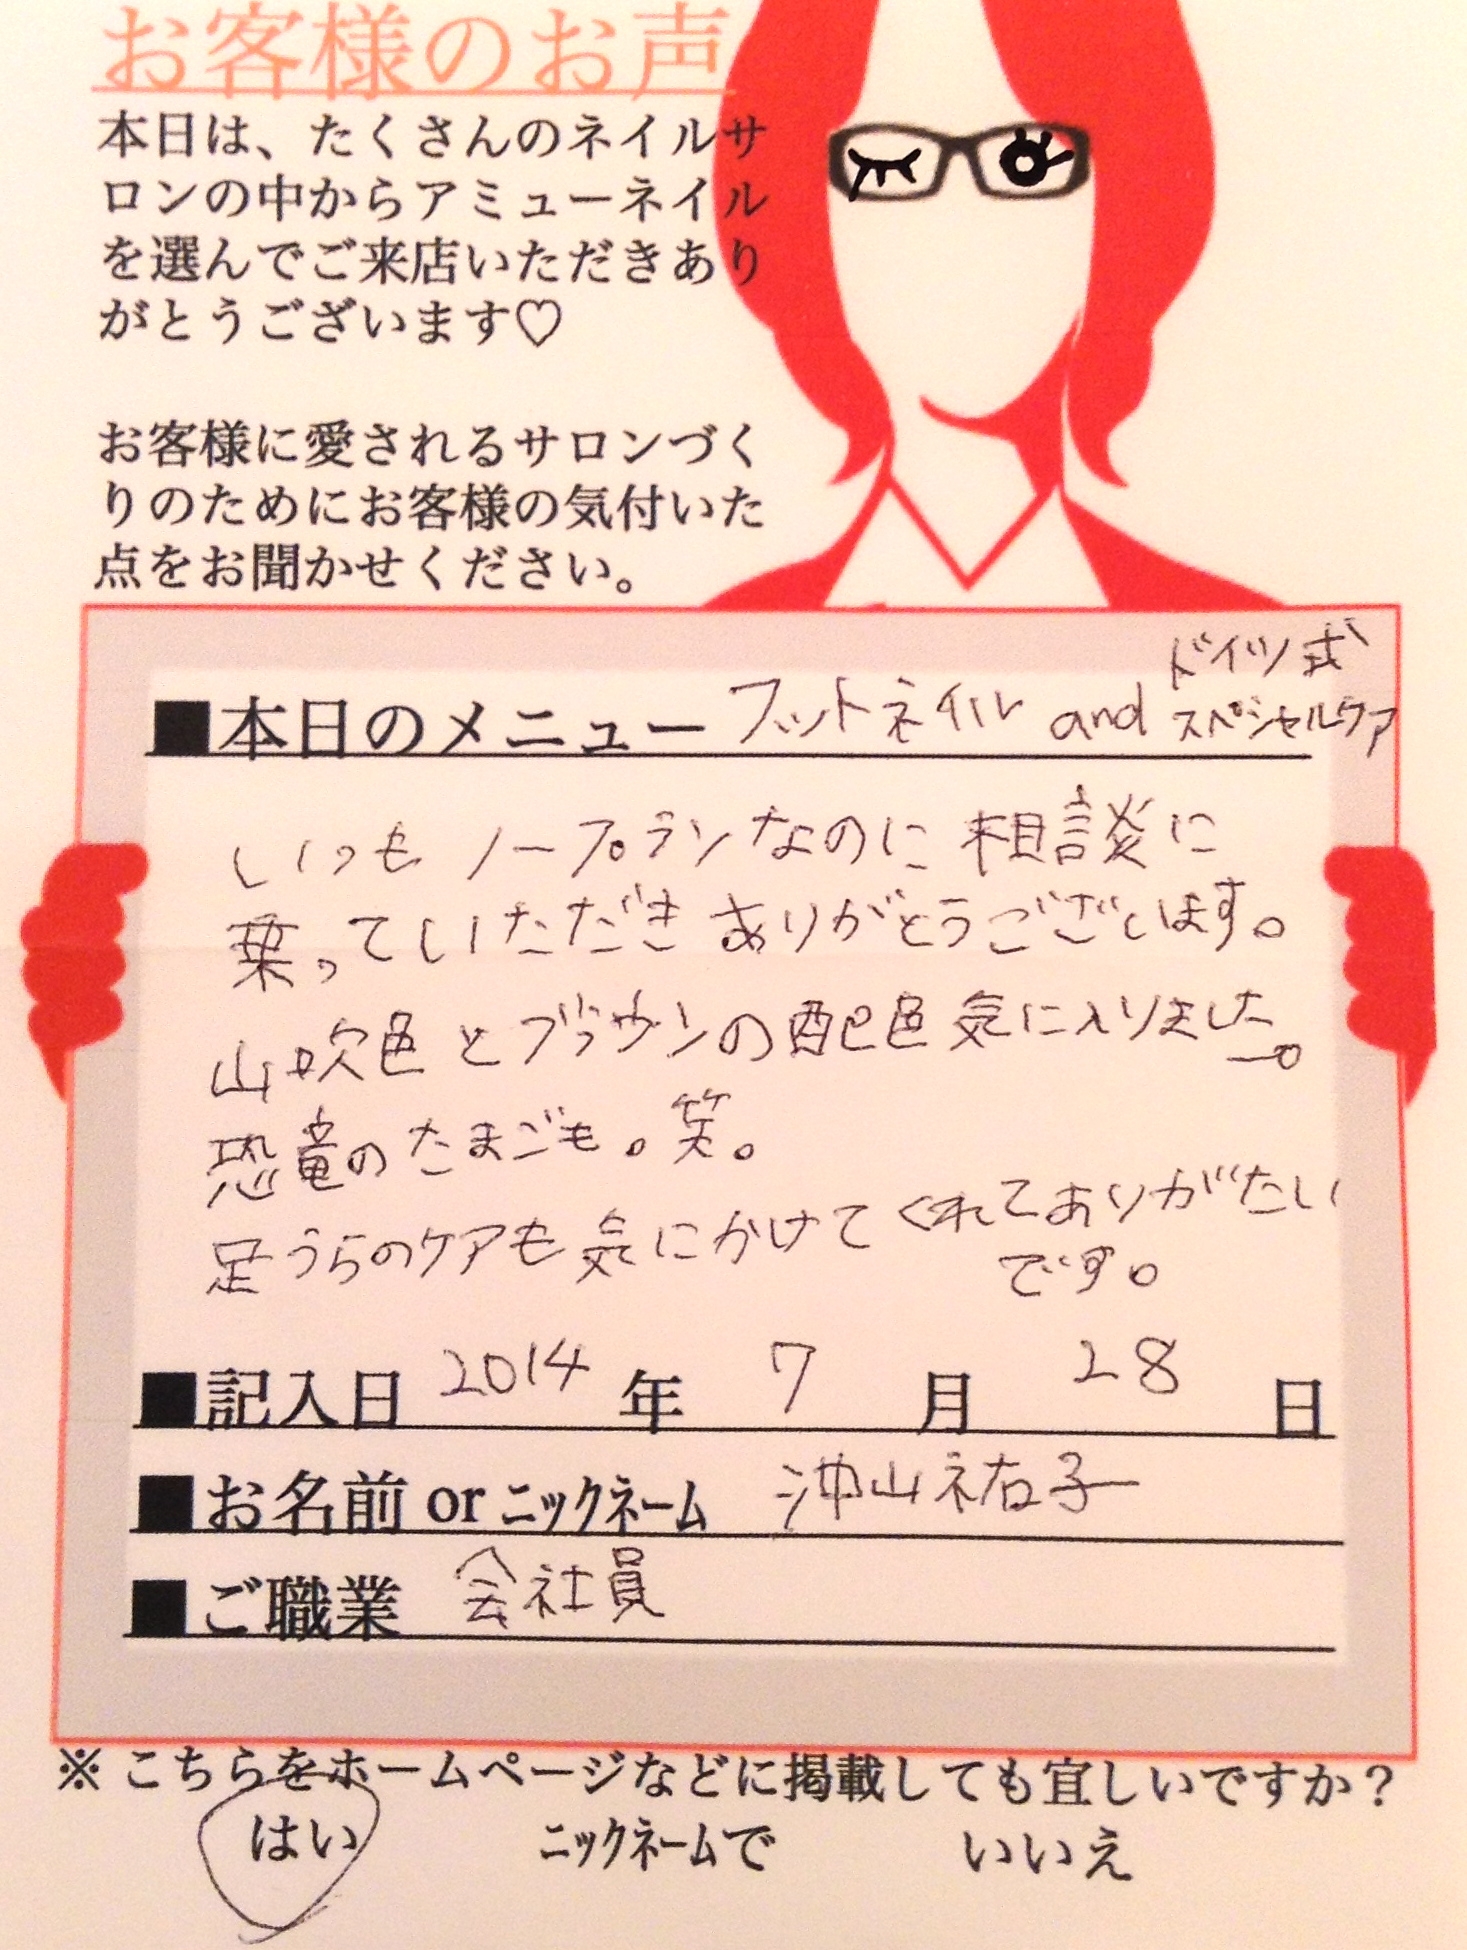 お客様のお声
本日は、たくさんのネイルサ
ロンの中からアミューネイル
を選んでご来店いただきあり
がとうございます♡
お客様に愛されるサロンづく
りのためにお客様の気付いた
点をお聞かせください。
■本日のメニュー フットネイル and ドイツ式
スペシャルケア
いつも ノープランなのに 相談に
乗っていただき ありがとうございます。
山吹色とブラウンの配色気に入りました。
恐竜のたまごも。笑。
足うらのケアも気にかけてくれてありがたい
です。
■記入日 2014 年 7 月 28 日
■お名前 or ニックネーム 沖山祐子
■ご職業 会社員
※ こちらをホームページなどに掲載しても宜しいですか？
はい ニックネームで いいえ